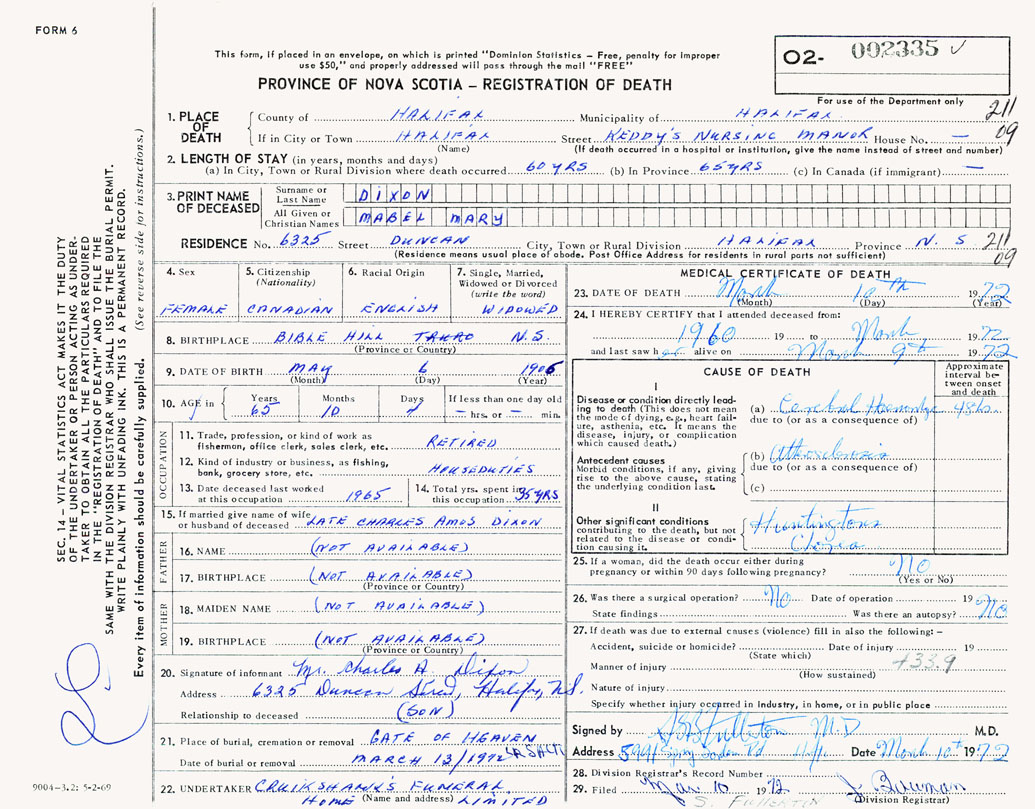 FORM 6
This form, if placed in an envelope, on which is printed "Dominion Statistics - Free, penalty for improper
use $50," and properly addressed will pass through the mail "FREE"
PROVINCE OF NOVA SCOTIA - REGISTRATION OF DEATH
O2- 002335 ✓
For use of the Department only
211
09
1. PLACE OF DEATH
County of HALIFAX Municipality of HALIFAX
If in City or Town HALIFAX Street KEDDY'S NURSING MANOR House No. —
(Name) (If death occurred in a hospital or institution, give the name instead of street and number)
2. LENGTH OF STAY (in years, months and days)
(a) In City, Town or Rural Division where death occurred 60 YRS (b) In Province 65 YRS (c) In Canada (if immigrant) —
3. PRINT NAME OF DECEASED
Surname or Last Name DIXON
All Given or Christian Names MABEL MARY
RESIDENCE No. 6325 Street DUNCAN City, Town or Rural Division HALIFAX Province N. S
(Residence means usual place of abode. Post Office Address for residents in rural parts not sufficient)
211
09
4. Sex FEMALE
5. Citizenship (Nationality) CANADIAN
6. Racial Origin ENGLISH
7. Single, Married, Widowed or Divorced (write the word) WIDOWED
8. BIRTHPLACE BIBLE HILL TRURO N.S.
(Province or Country)
9. DATE OF BIRTH MAY 6 1906
(Month) (Day) (Year)
10. AGE in Years 65 Months 10 Days If less than one day old — hrs. or — min.
OCCUPATION
11. Trade, profession, or kind of work as
fishermen, office clerk, sales clerk, etc. RETIRED
12. Kind of industry or business, as fishing,
bank, grocery store, etc. HOUSEDUTIES
13. Date deceased last worked
at this occupation 1965
14. Total yrs. spent in
this occupation 35 YRS
15. If married give name of wife
or husband of deceased LATE CHARLES AMOS DIXON
FATHER
16. NAME (NOT AVAILABLE)
17. BIRTHPLACE (NOT AVAILABLE)
(Province or Country)
MOTHER
18. MAIDEN NAME (NOT AVAILABLE)
19. BIRTHPLACE (NOT AVAILABLE)
(Province or Country)
20. Signature of informant Mr. Charles A. Dixon
Address 6325 Duncan Street, Halifax, N.S.
Relationship to deceased (SON)
21. Place of burial, cremation or removal GATE OF HEAVEN
Date of burial or removal MARCH 13/1972
22. UNDERTAKER CRUIKSHANK'S FUNERAL
HOME (Name and address) LIMITED
MEDICAL CERTIFICATE OF DEATH
23. DATE OF DEATH March 10th 1972
(Month) (Day) (Year)
24. I HEREBY CERTIFY that I attended deceased from:
1960 19 to March 1972
and last saw her alive on March 9th 1972
CAUSE OF DEATH
Approximate interval between onset and death
I
Disease or condition directly leading to death (This does not mean the mode of dying, e.g., heart failure, asthenia, etc. It means the disease, injury, or complication which caused death.)
(a) Cerebral Hemorrhage 48 hr.
due to (or as a consequence of)
Antecedent causes
Morbid conditions, if any, giving rise to the above cause, stating the underlying condition last.
(b)
due to (or as a consequence of)
(c)
II
Other significant conditions
contributing to the death, but not related to the disease or condition causing it.
Huntingtons
Chorea
25. If a woman, did the death occur either during
pregnancy or within 90 days following pregnancy? No
(Yes or No)
26. Was there a surgical operation? No Date of operation 19
State findings Was there an autopsy? No
27. If death was due to external causes (violence) fill in also the following: -
Accident, suicide or homicide? Date of injury 19
(State which)
Manner of injury 433.9
(How sustained)
Nature of injury
Specify whether injury occurred in industry, in home, or in public place
Signed by S B Fullerton M.D M.D.
Address 5991 Spring Garden Rd Date March 10th 1972
28. Division Registrar's Record Number
29. Filed Mar 10 1972 J. Bowman
(Division Registrar)
S. Fullerton
SEC. 14 - VITAL STATISTICS ACT MAKES IT THE DUTY
OF THE UNDERTAKER OR PERSON ACTING AS UNDER-
TAKER TO OBTAIN ALL THE PARTICULARS REQUIRED
IN THE "REGISTRATION OF DEATH" AND TO FILE THE
SAME WITH THE DIVISION REGISTRAR WHO SHALL ISSUE THE BURIAL PERMIT.
WRITE PLAINLY WITH UNFADING INK. THIS IS A PERMANENT RECORD.
Every item of information should be carefully supplied. (See reverse side for instructions.)
9004-3.2: 5-2-69